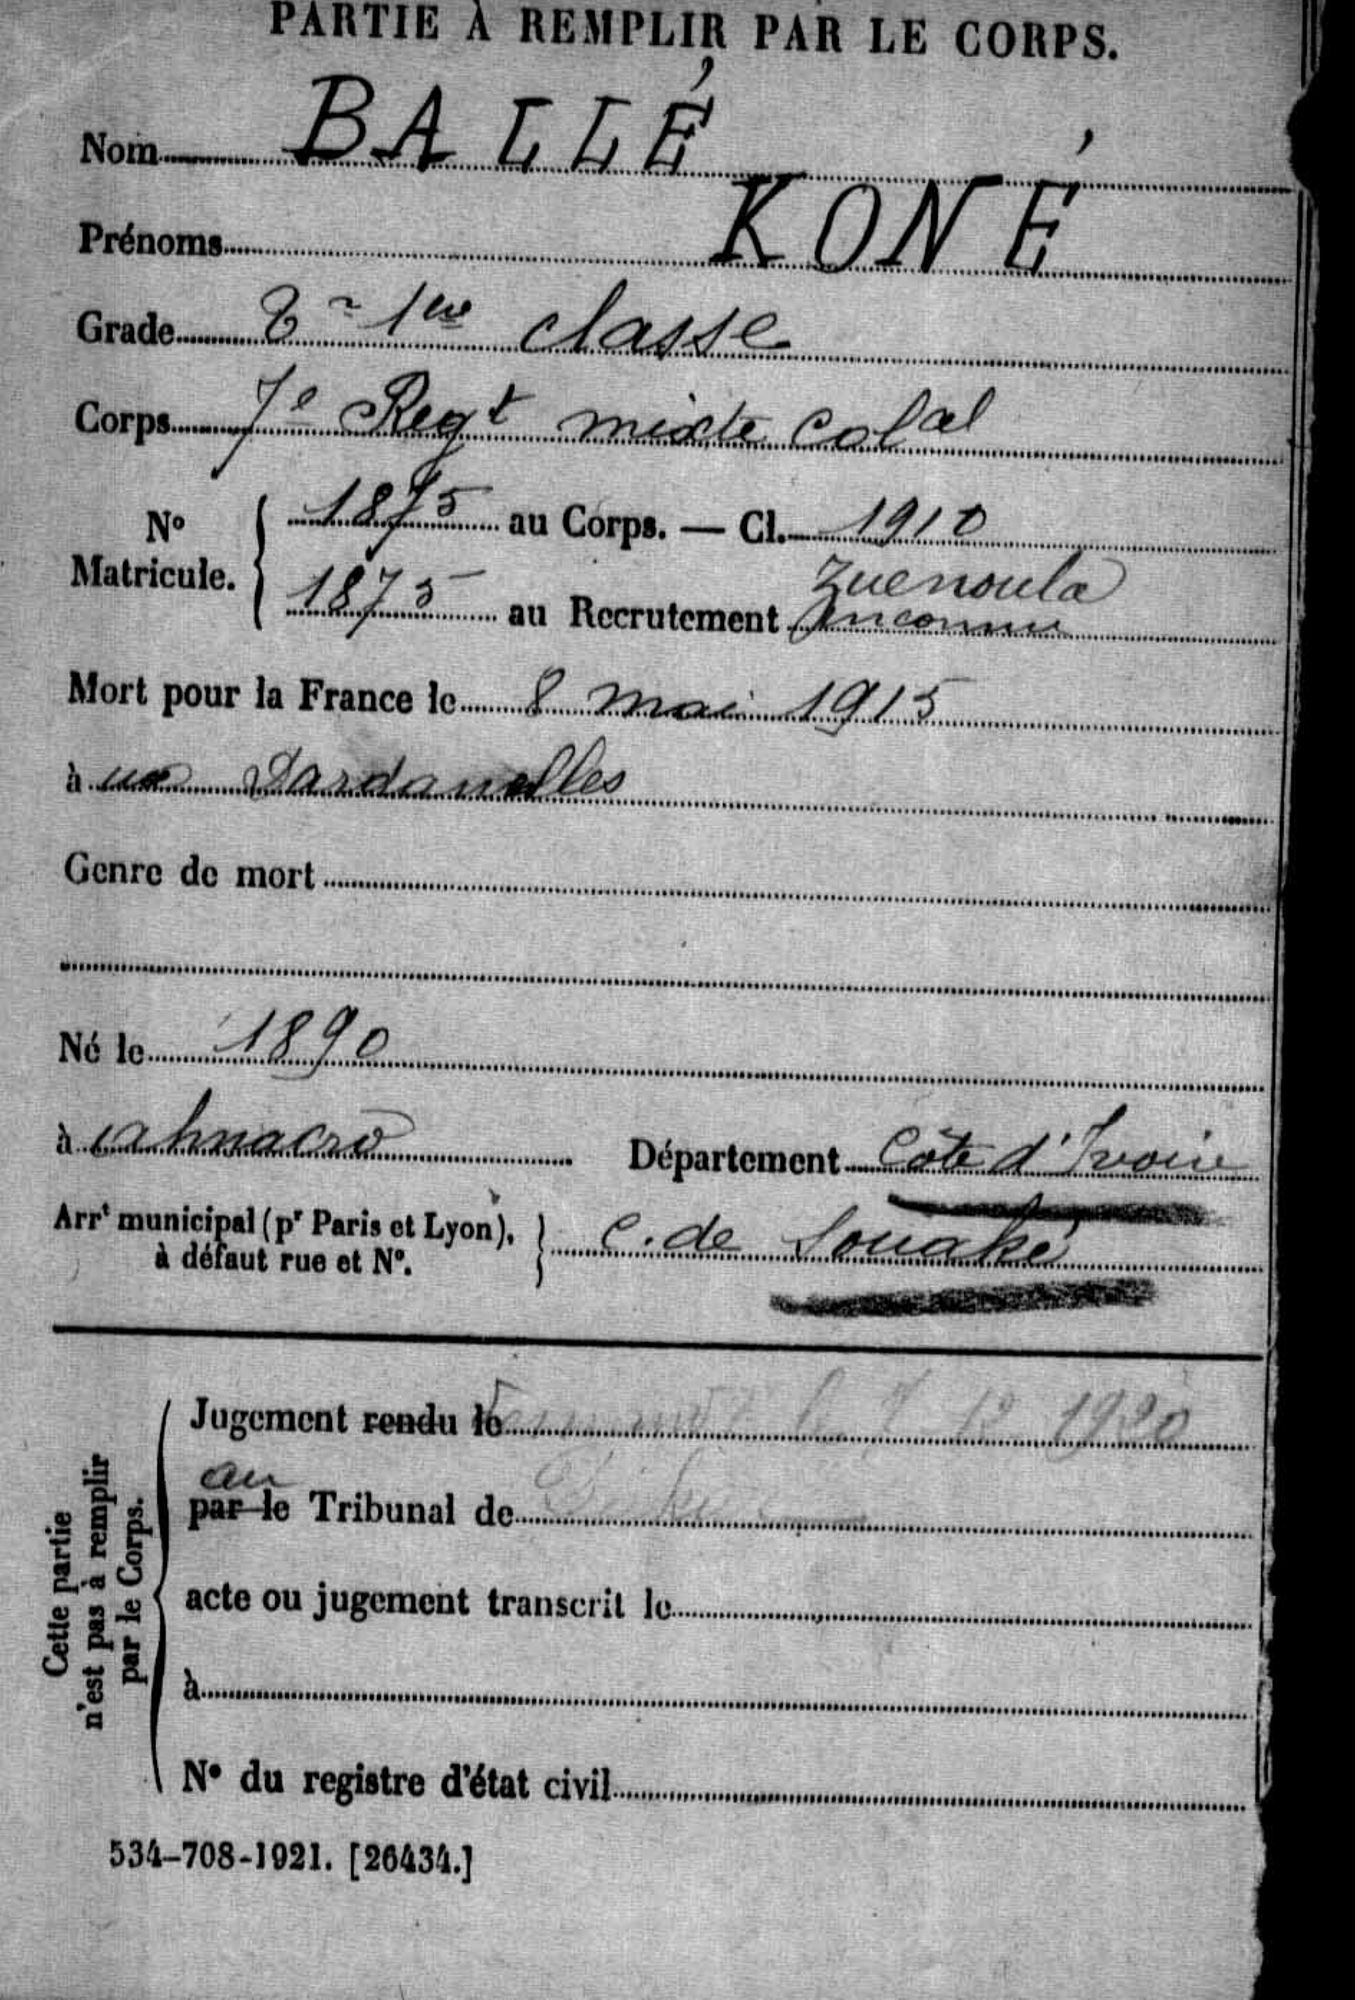 PARTIE À REMPLIR PAR LE CORPS.
Nom BALLÉ
Prénoms KONÉ
Grade 1ère classe
Corps 7e Regt mixte colal
No Matricule. 1875 au Corps. — Cl. 1910
1875 au Recrutement Zuenoula
Inconnu
Mort pour la France le 8 mai 1915
à aux Dardanelles
Genre de mort
Né le 1890
à Département Côte d'Ivoire
Arrt municipal (pr Paris et Lyon), à défaut rue et No. C. de Souaké
Cette partie n'est pas à remplir par le Corps.
Jugement rendu le 1920
au
par le Tribunal de
acte ou jugement transcrit le
à
No du registre d'état civil
534-708-1921. [26434.]